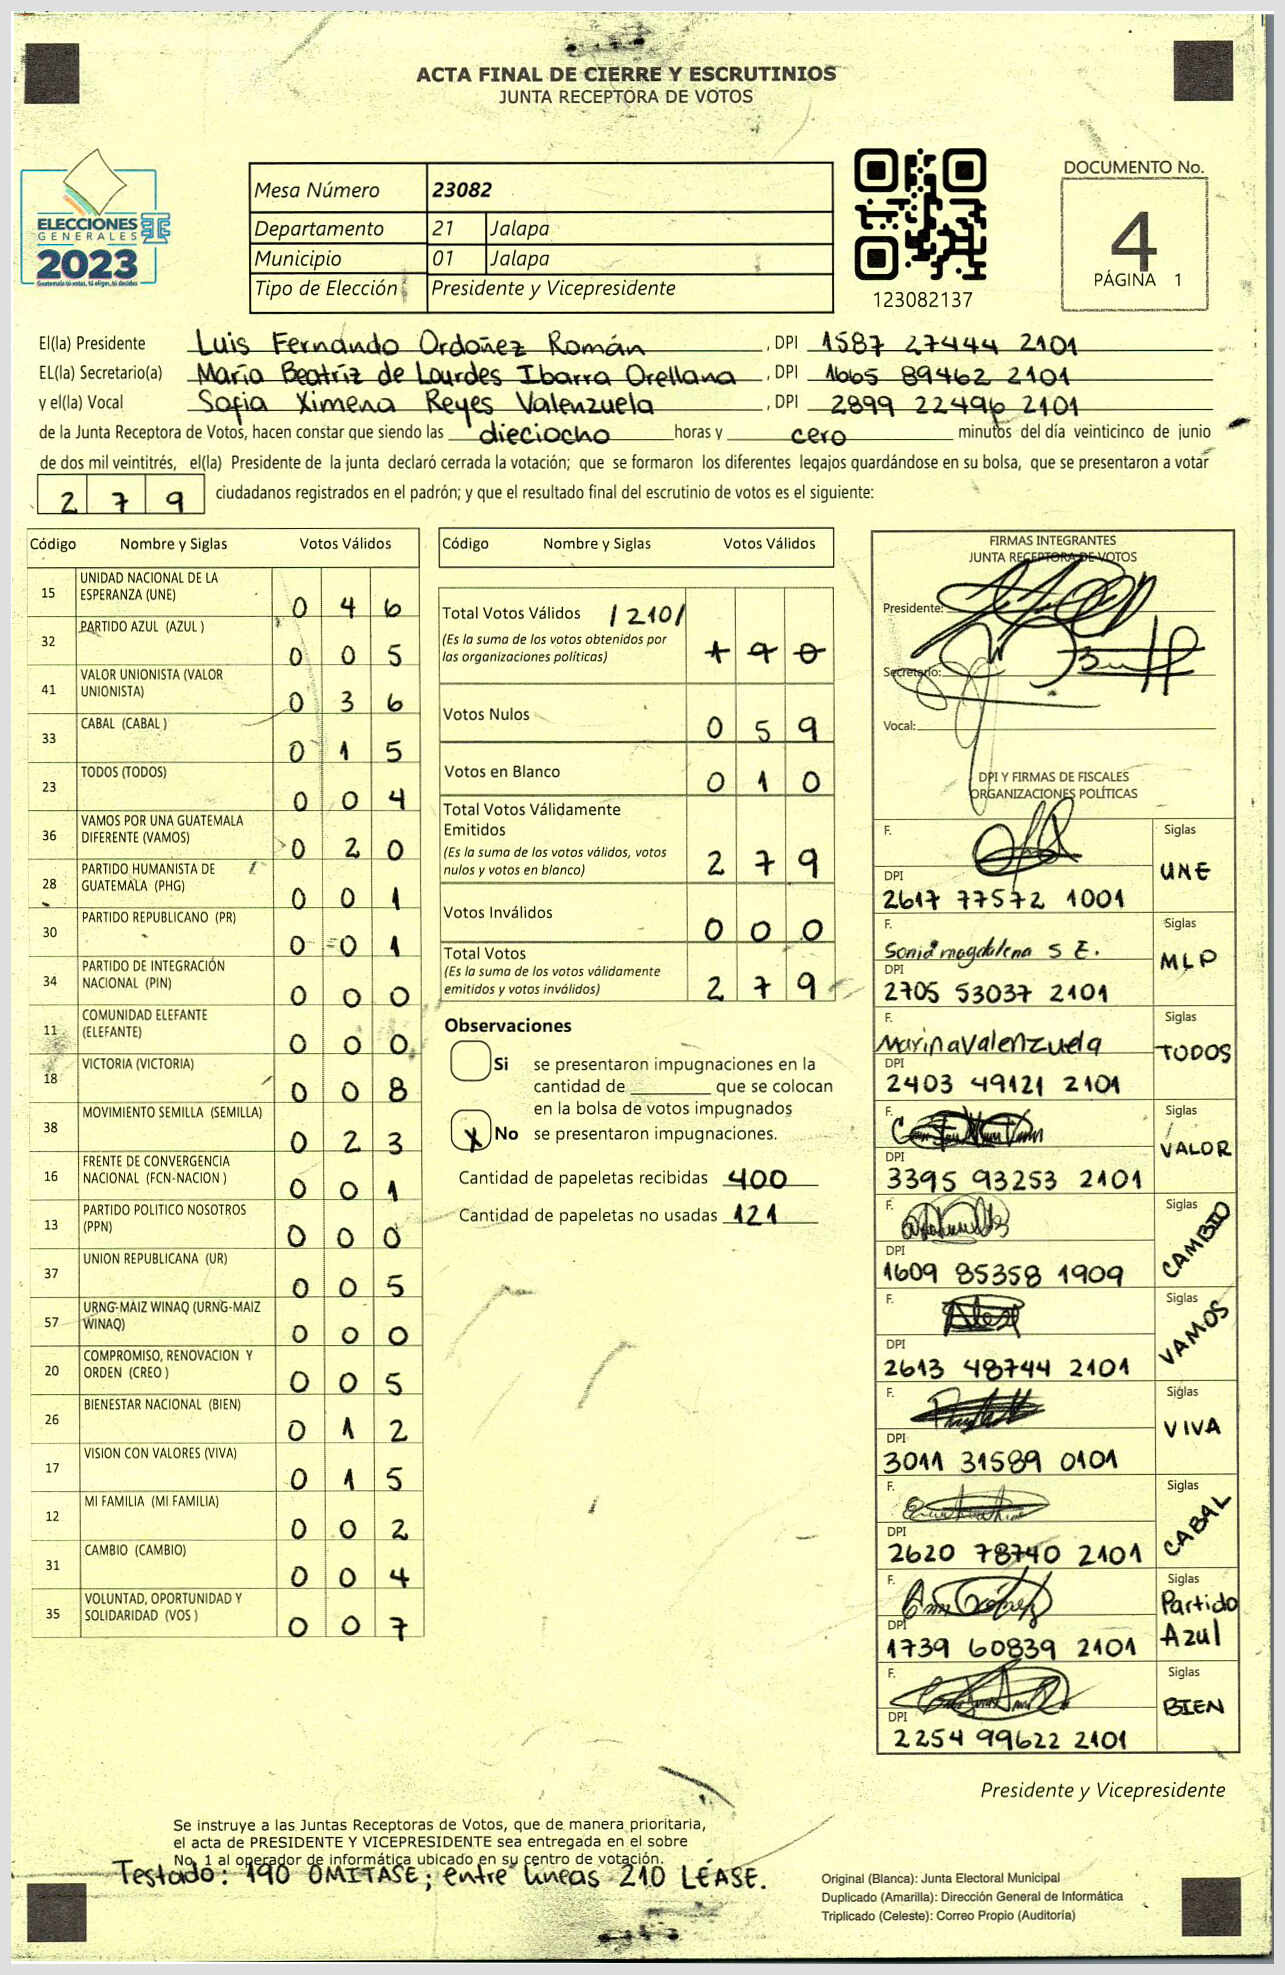 ACTA FINAL DE CIERRE Y ESCRUTINIOS
JUNTA RECEPTORA DE VOTOS
ELECCIONES
GENERALES
2023
Guatemala tú votas, tú eliges, tú decides
Mesa Número 23082
Departamento 21 Jalapa
Municipio 01 Jalapa
Tipo de Elección Presidente y Vicepresidente
123082137
DOCUMENTO No.
4
PÁGINA 1
El(la) Presidente Luis Fernando Ordoñez Román, DPI 1587 27444 2101
EL(la) Secretario(a) María Beatríz de Lourdes Ibarra Orellana, DPI 1665 89462 2101
y el(la) Vocal Sofia Ximena Reyes Valenzuela, DPI 2899 22496 2101
de la Junta Receptora de Votos, hacen constar que siendo las dieciocho horas y cero minutos del día veinticinco de junio
de dos mil veintitrés, el(la) Presidente de la junta declaró cerrada la votación; que se formaron los diferentes legajos guardándose en su bolsa, que se presentaron a votar
2 7 9 ciudadanos registrados en el padrón; y que el resultado final del escrutinio de votos es el siguiente:
Código Nombre y Siglas Votos Válidos
15 UNIDAD NACIONAL DE LA
ESPERANZA (UNE) 0 4 6
32 PARTIDO AZUL (AZUL ) 0 0 5
41 VALOR UNIONISTA (VALOR
UNIONISTA) 0 3 6
33 CABAL (CABAL ) 0 1 5
23 TODOS (TODOS) 0 0 4
36 VAMOS POR UNA GUATEMALA
DIFERENTE (VAMOS) 0 2 0
28 PARTIDO HUMANISTA DE
GUATEMALA (PHG) 0 0 1
30 PARTIDO REPUBLICANO (PR) 0 0 1
34 PARTIDO DE INTEGRACIÓN
NACIONAL (PIN) 0 0 0
11 COMUNIDAD ELEFANTE
(ELEFANTE) 0 0 0
18 VICTORIA (VICTORIA) 0 0 8
38 MOVIMIENTO SEMILLA (SEMILLA) 0 2 3
16 FRENTE DE CONVERGENCIA
NACIONAL (FCN-NACION ) 0 0 1
13 PARTIDO POLITICO NOSOTROS
(PPN) 0 0 0
37 UNION REPUBLICANA (UR) 0 0 5
57 URNG-MAIZ WINAQ (URNG-MAIZ
WINAQ) 0 0 0
20 COMPROMISO, RENOVACION Y
ORDEN (CREO ) 0 0 5
26 BIENESTAR NACIONAL (BIEN) 0 1 2
17 VISION CON VALORES (VIVA) 0 1 5
12 MI FAMILIA (MI FAMILIA) 0 0 2
31 CAMBIO (CAMBIO) 0 0 4
35 VOLUNTAD, OPORTUNIDAD Y
SOLIDARIDAD (VOS ) 0 0 7
Código Nombre y Siglas Votos Válidos
Total Votos Válidos /210/
(Es la suma de los votos obtenidos por
las organizaciones políticas) 1 9 0
Votos Nulos 0 5 9
Votos en Blanco 0 1 0
Total Votos Válidamente
Emitidos
(Es la suma de los votos válidos, votos
nulos y votos en blanco) 2 7 9
Votos Inválidos 0 0 0
Total Votos
(Es la suma de los votos válidamente
emitidos y votos inválidos) 2 7 9
Observaciones
Si se presentaron impugnaciones en la
cantidad de ________ que se colocan
en la bolsa de votos impugnados
X No se presentaron impugnaciones.
Cantidad de papeletas recibidas 400
Cantidad de papeletas no usadas 121
FIRMAS INTEGRANTES
JUNTA RECEPTORA DE VOTOS
Presidente:
Secretario:
Vocal:
DPI Y FIRMAS DE FISCALES
ORGANIZACIONES POLÍTICAS
F. Siglas
UNE
DPI
2617 77572 1001
F. Siglas
Sonia magdalena S E. MLP
DPI
2705 53037 2101
F. Siglas
Marina Valenzuela TODOS
DPI
2403 49121 2101
F. Siglas
VALOR
DPI
3395 93253 2101
F. Siglas
CAMBIO
DPI
1609 85358 1909
F. Siglas
VAMOS
DPI
2613 48744 2101
F. Siglas
VIVA
DPI
3011 31589 0101
F. Siglas
CABAL
DPI
2620 78740 2101
F. Siglas
Partido
Azul
DPI
1739 60839 2101
F. Siglas
BIEN
DPI
2254 99622 2101
Presidente y Vicepresidente
Se instruye a las Juntas Receptoras de Votos, que de manera prioritaria,
el acta de PRESIDENTE Y VICEPRESIDENTE sea entregada en el sobre
No. 1 al operador de informática ubicado en su centro de votación.
Testado: 190 OMITASE; entre líneas 210 LÉASE.
Original (Blanca): Junta Electoral Municipal
Duplicado (Amarilla): Dirección General de Informática
Triplicado (Celeste): Correo Propio (Auditoría)